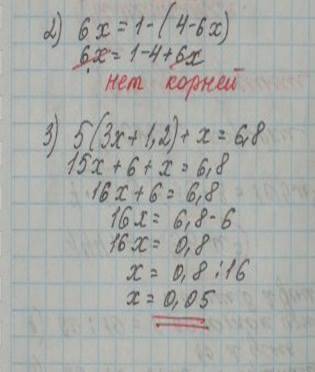 2) 6x = 1-(4-6x)
6x = 1-4+6x
нет корней
3) 5(3x+1,2)+x = 6,8
15x+6+x = 6,8
16x+6 = 6,8
16x = 6,8-6
16x = 0,8
x = 0,8:16
x = 0,05